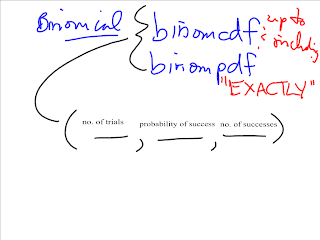 Binomial
binomcdf up to & including
binompdf
"EXACTLY"
( no. of trials , probability of success , no. of successes )